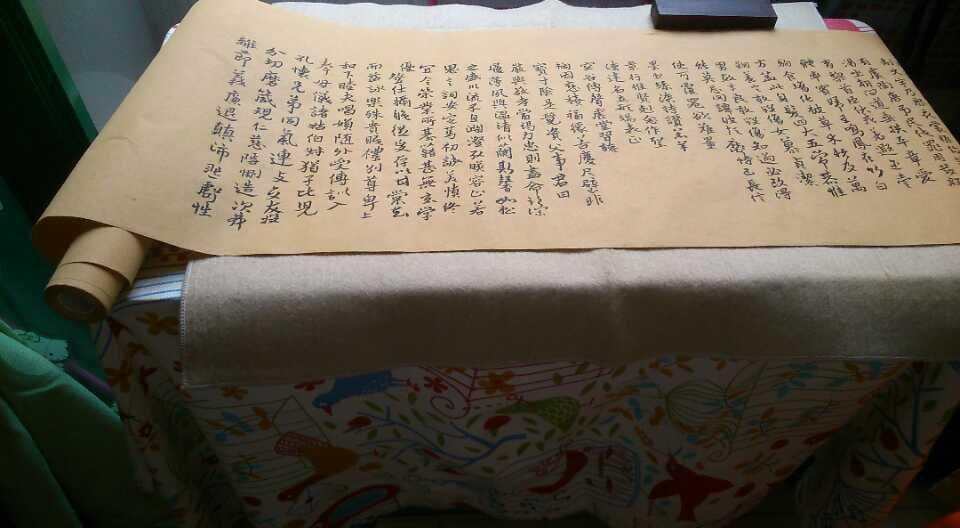 有虞陶唐弔民伐罪周發殷
湯坐朝問道垂拱平章愛
育黎首臣伏戎羌遐邇壹
體率賓歸王鳴鳳在竹白
駒食場化被草木賴及萬
方蓋此身髮四大五常恭惟
鞠養豈敢毀傷女慕貞潔
男效才良知過必改得
能莫忘罔談彼短靡恃己長信
使可覆器欲難量
墨悲絲染詩讚羔羊
景行維賢剋念作聖
德建名立形端表正
空谷傳聲虛堂習聽
禍因惡積福緣善慶尺璧非
寶寸陰是競資父事君曰
嚴與敬孝當竭力忠則盡命臨深
履薄夙興溫凊似蘭斯馨如松
之盛川流不息淵澄取映容止若
思言詞安定篤初誠美慎終
宜令榮業所基籍甚無竟學
優登仕攝職從政存以甘棠去
而益詠樂殊貴賤禮別尊卑上
和下睦夫唱婦隨外受傅訓入
奉母儀諸姑伯叔猶子比兒
孔懷兄弟同氣連支交友投
分切磨箴規仁慈隱惻造次弗
離節義廉退顛沛匪虧性